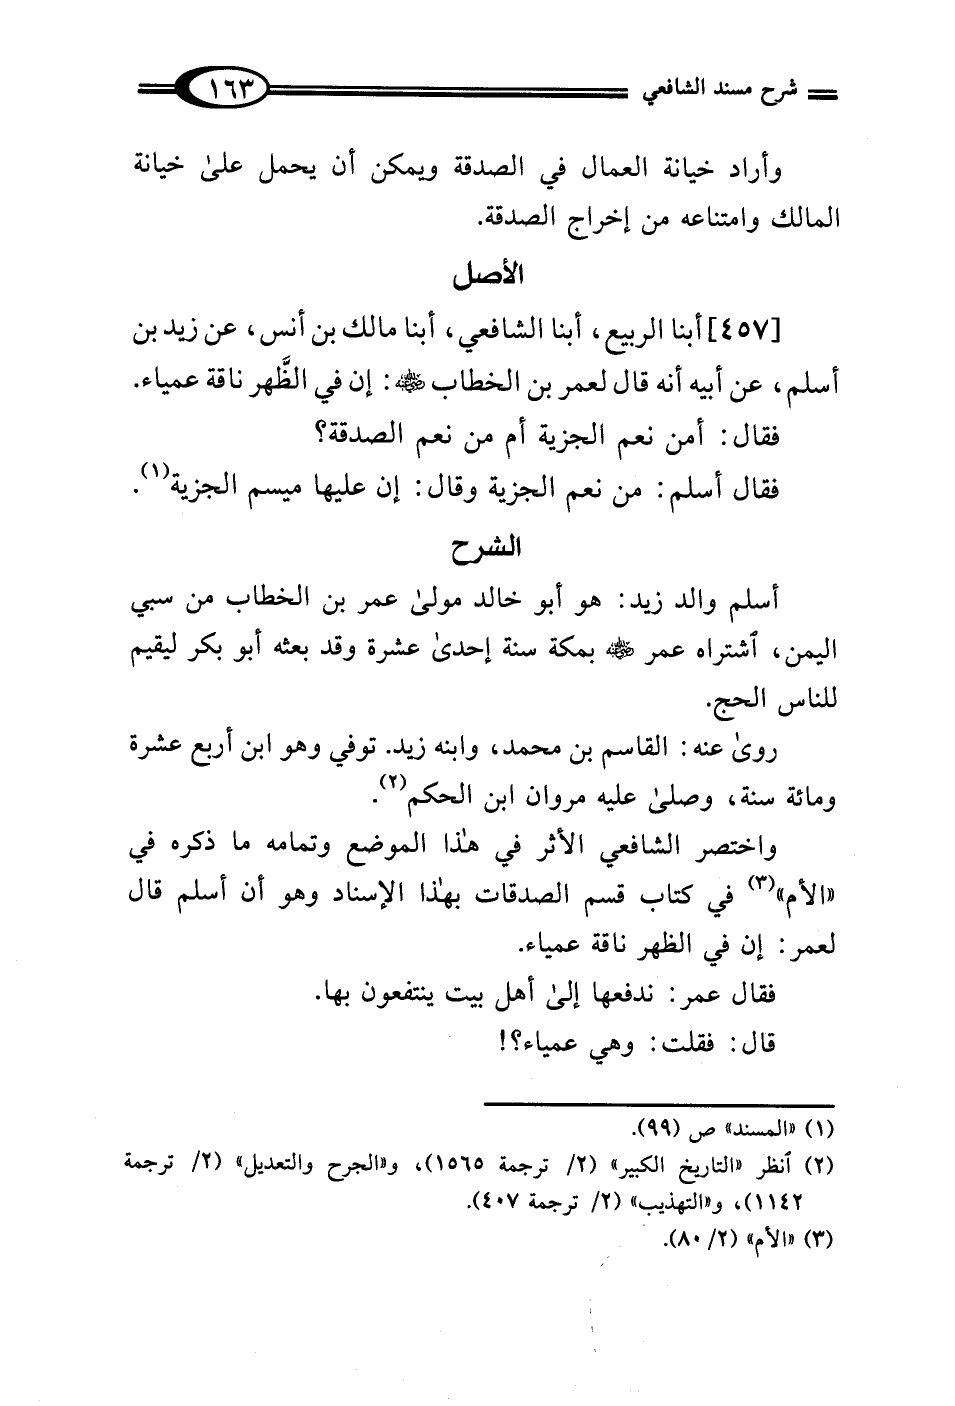 شرح مسند الشافعي ١٦٣
وأراد خيانة العمال في الصدقة ويمكن أن يحمل علىٰ خيانة
المالك وامتناعه من إخراج الصدقة.
الأصل
[٤٥٧] أبنا الربيع، أبنا الشافعي، أبنا مالك بن أنس، عن زيد بن
أسلم، عن أبيه أنه قال لعمر بن الخطاب ﵁: إن في الظَّهر ناقة عمياء.
فقال: أمن نعم الجزية أم من نعم الصدقة؟
فقال أسلم: من نعم الجزية وقال: إن عليها ميسم الجزية(١).
الشرح
أسلم والد زيد: هو أبو خالد مولىٰ عمر بن الخطاب من سبي
اليمن، ٱشتراه عمر ﵁ بمكة سنة إحدىٰ عشرة وقد بعثه أبو بكر ليقيم
للناس الحج.
روىٰ عنه: القاسم بن محمد، وابنه زيد. توفي وهو ابن أربع عشرة
ومائة سنة، وصلىٰ عليه مروان ابن الحكم(٢).
واختصر الشافعي الأثر في هٰذا الموضع وتمامه ما ذكره في
«الأم»(٣) في كتاب قسم الصدقات بهٰذا الإسناد وهو أن أسلم قال
لعمر: إن في الظهر ناقة عمياء.
فقال عمر: ندفعها إلىٰ أهل بيت ينتفعون بها.
قال: فقلت: وهي عمياء؟!
(١) «المسند» ص (٩٩).
(٢) ٱنظر «التاريخ الكبير» (٢/ ترجمة ١٥٦٥)، و«الجرح والتعديل» (٢/ ترجمة
١١٤٢)، و«التهذيب» (٢/ ترجمة ٤٠٧).
(٣) «الأم» (٢/ ٨٠).